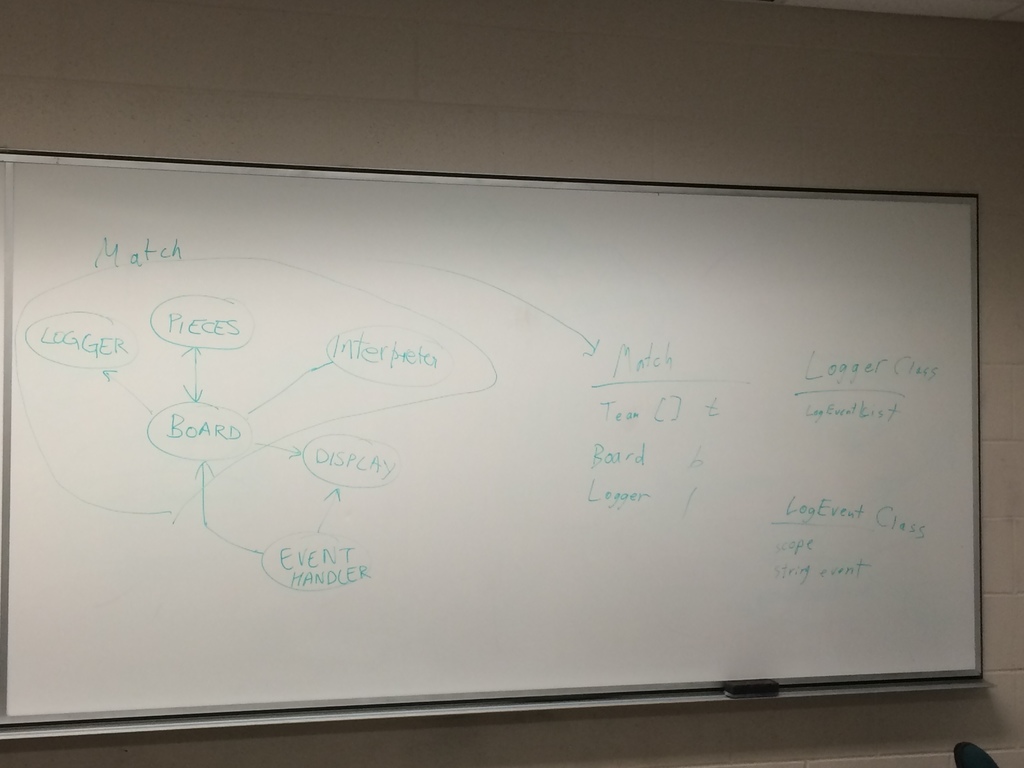 Match
LOGGER
PIECES
Interpreter
BOARD
DISPLAY
EVENT
HANDLER
Match
Team [] t
Board b
Logger l
Logger Class
LogEventList
LogEvent Class
scope
string event